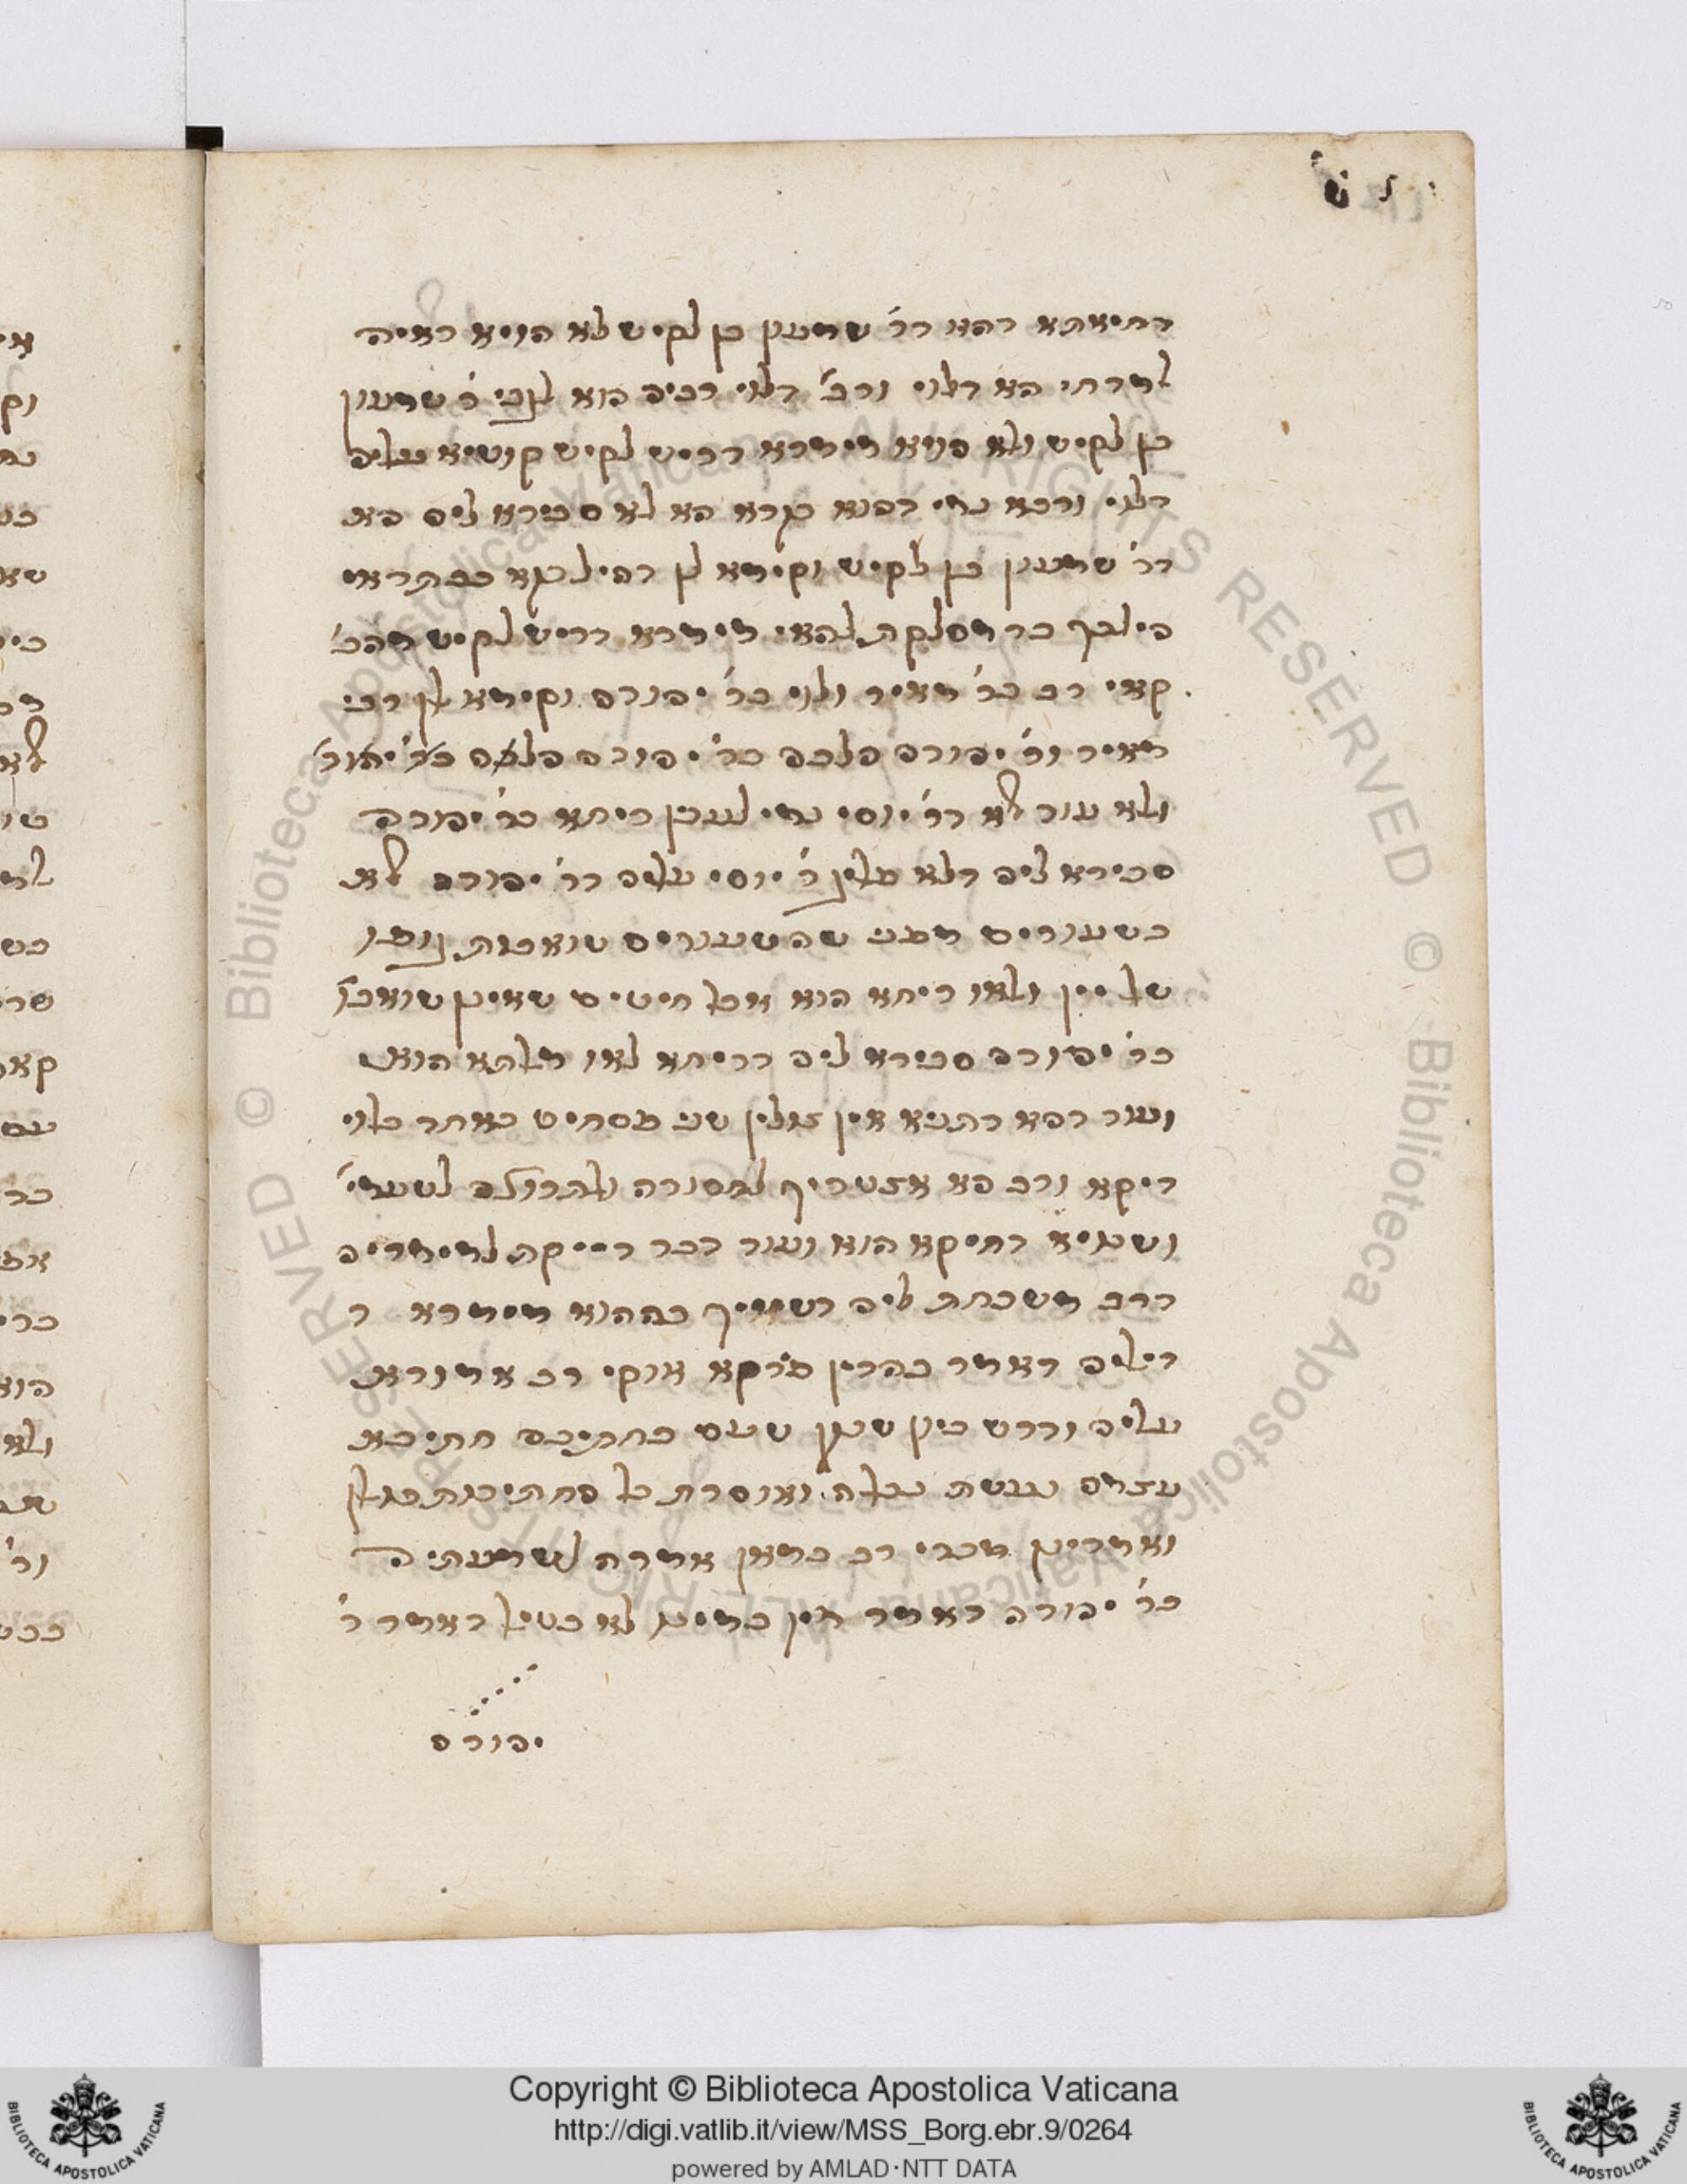 דחיאתא דהא דר' שמעון בן לקיש לא הויא ראיה
לדחי הא דלוי ורב' דלוי רביה הוא לגבי ר' שמעון
בן לקיש ולא הויא מימרא דריש לקיש קושיא עליה
דלוי ורבא נמי דהוא בתרא הא לא סבירא ליה הא
דר' שמעון בן לקיש וקימא לן דהילכתא כבתראי
הילכך כד מסלקת להאי מימרא דריש לקיש מהכ'
קאי רב כר' מאיר ולוי כר' יהודה וקימא לן רבי
מאיר ור' יהודה הלכה כר' יהודה הלכה כר' יהוד'
ולא עוד אלא דר' יוסי נמי לענין ריחא כר' יהודה
סבירא ליה דלא פליג ר' יוסי עליה דר' יהודה אלא
בשעורים מפני שהשעורים שואבות
של יין ולאו ריחא הוא אבל חיטים שאינן שואבו'
כר' יהודה סבירא ליה דריחא לאו מלתא הוא
ועוד דהא דתניא אין צולין שני פסחים כאחד כלוי
דיקא ורב הא אצטריך לחסורה ולתרוצה לשנויי'
ושנויא דחיקא הוא ועוד דכד דייקת למימריה
דרב משכחת ליה דשוויך בההוא מימרא ד
דיליה דאמר בהדין פרקא אוקי רב אמורא
עליה ודרש כיון שנתן טעם בחתיכה חתיכא
עצמה נעשת נבלה ואוסרת כל החתיכות כולן
ואמרינן מכדי רב כמאן אמרה לשמעתיה
כר' יהודה דאמר מין במינו לא בטיל דאמר ר'
יהודה
Copyright © Biblioteca Apostolica Vaticana
http://digi.vatlib.it/view/MSS_Borg.ebr.9/0264
powered by AMLAD·NTT DATA